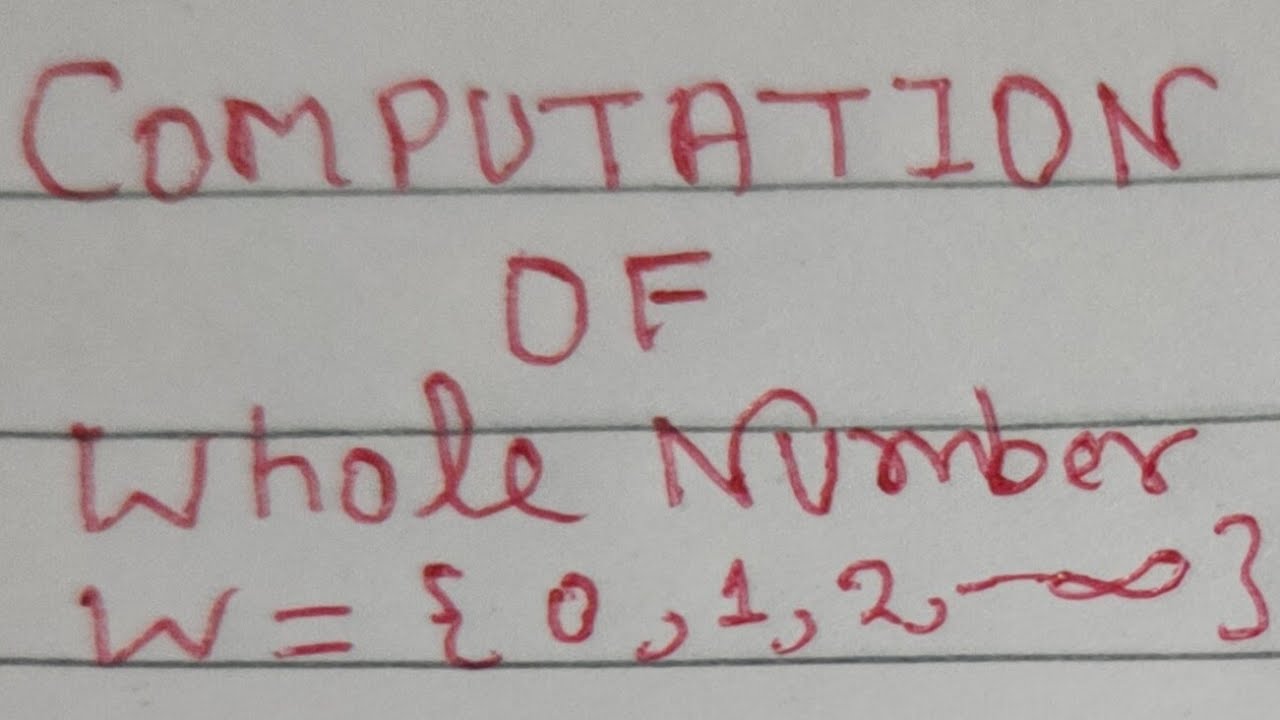 COMPUTATION
OF
Whole Number
W = { 0, 1, 2, —∞ }